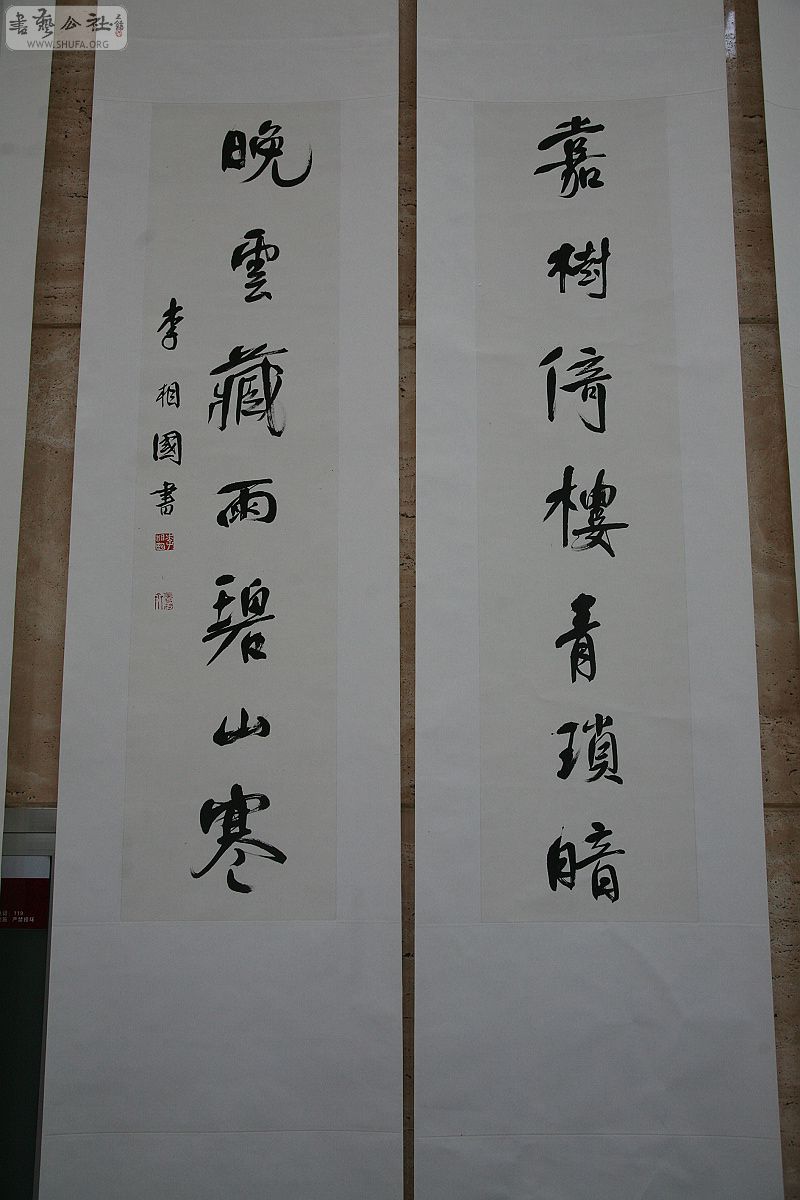 書藝公社
WWW.SHUFA.ORG
嘉樹倚樓青瑣暗
晚雲藏雨碧山寒
李相國書
119